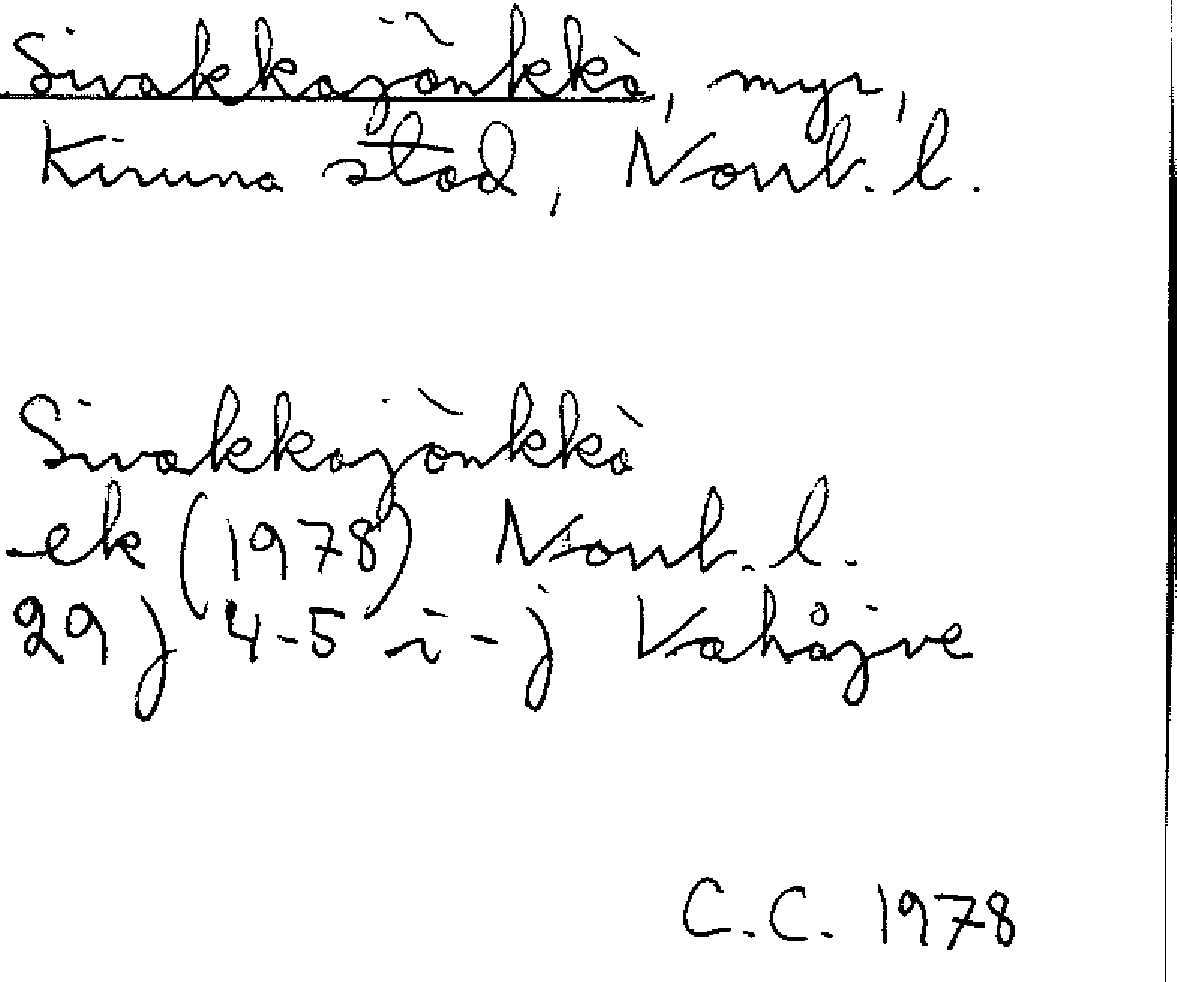 Sivakkajänkkä, myr,
Kiruna stad, Norrb. l.
Sivakkajänkkä
ek (1978) Norrb. l.
29 J 4-5 i-j Vahåive
C.C. 1978